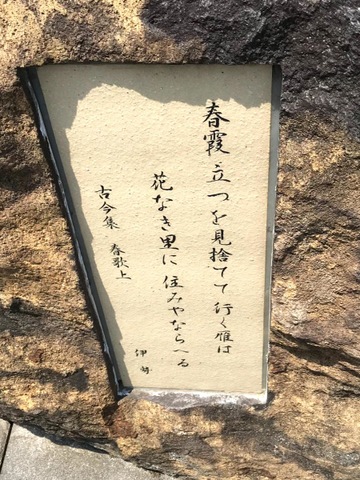 春霞立つを見捨てて行く雁は
花なき里に住みやならへる
古今集 春歌上
伊勢